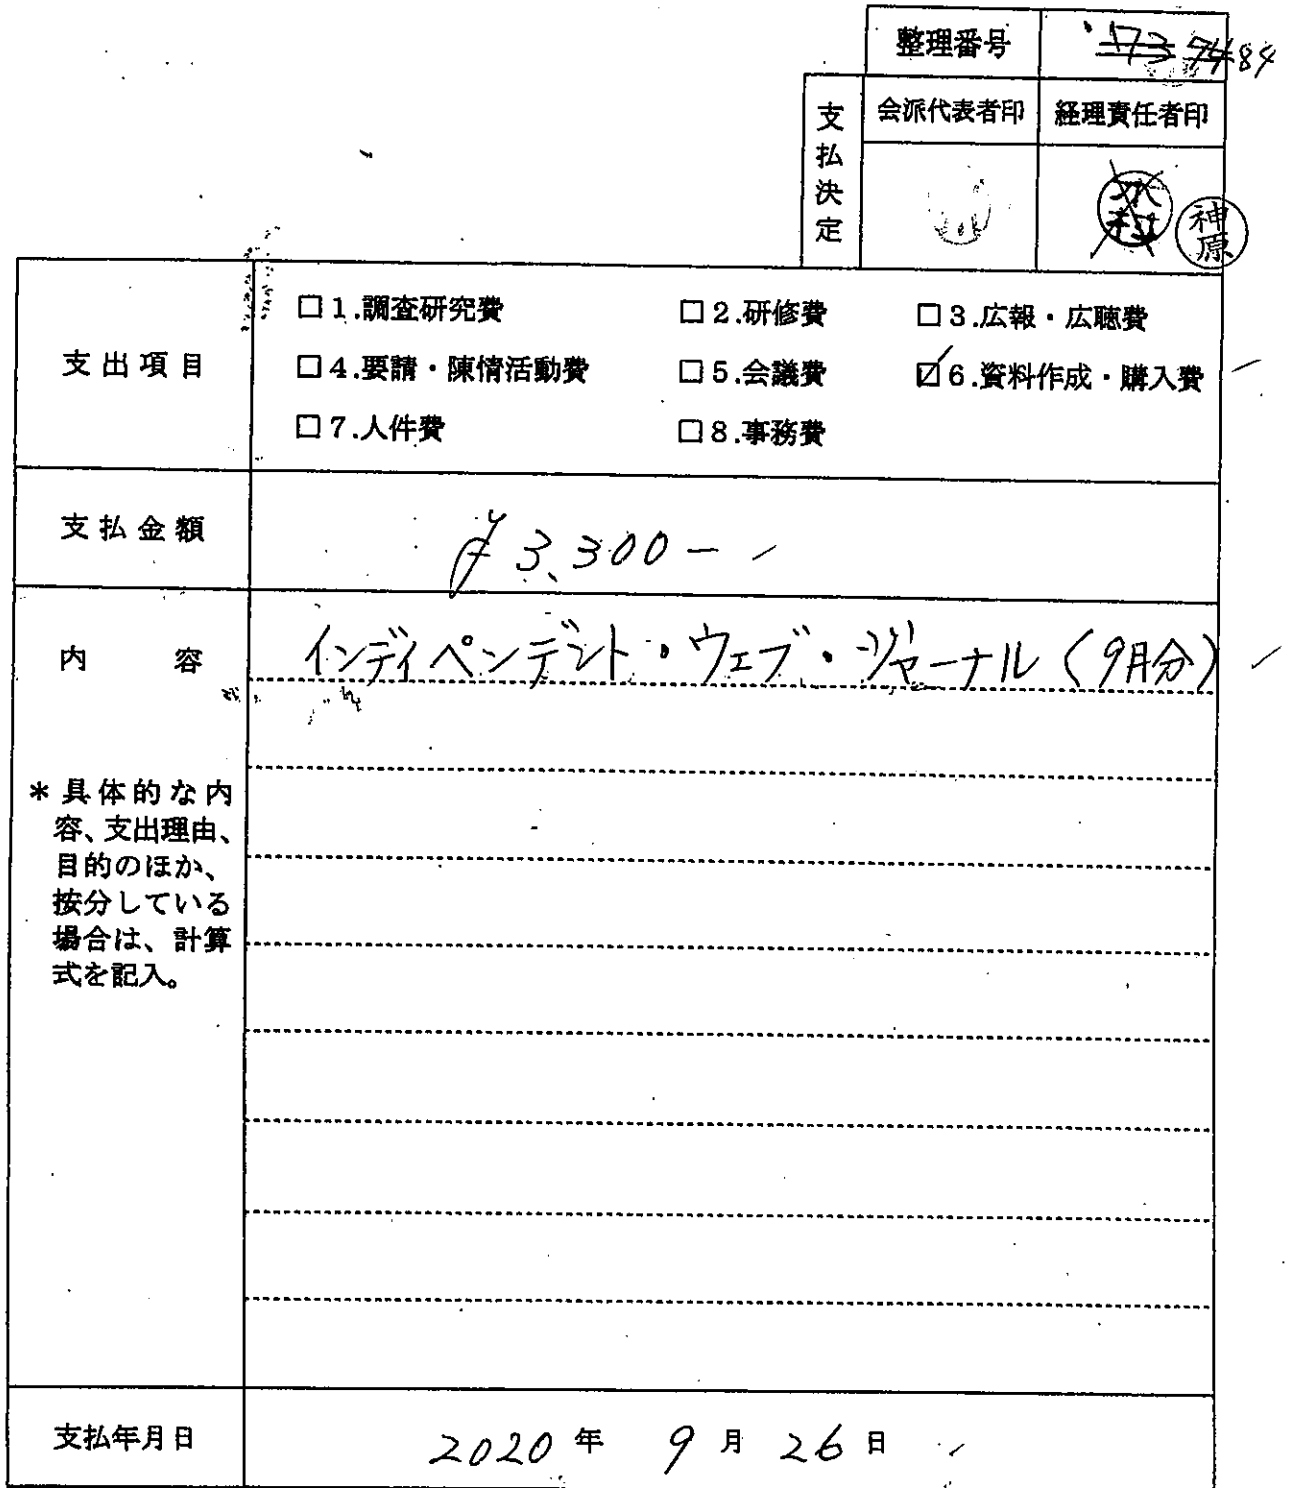 整理番号 173 74 84
支払決定
会派代表者印 経理責任者印
神原
支出項目
□1.調査研究費 □2.研修費 □3.広報・広聴費
□4.要請・陳情活動費 □5.会議費 ☑6.資料作成・購入費
□7.人件費 □8.事務費
支払金額 ¥3,300-
内容 インディペンデント・ウェブ・ジャーナル(9月分)
*具体的な内
容、支出理由、
目的のほか、
按分している
場合は、計算
式を記入。
支払年月日 2020年 9月 26日